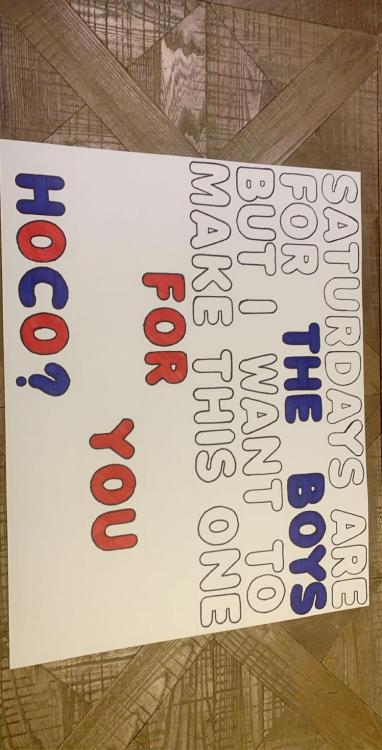 SATURDAYS ARE
FOR THE BOYS
BUT I WANT TO
MAKE THIS ONE
FOR
YOU
HOCO?